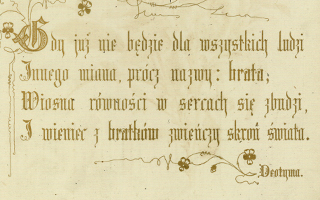 Gdy już nie będzie dla wszystkich ludzi
Innego miana, prócz nazwy: brata;
Wiosna równości w sercach się zbudzi,
I wieniec z bratków zwieńczy skroń świata.
Deotyma.